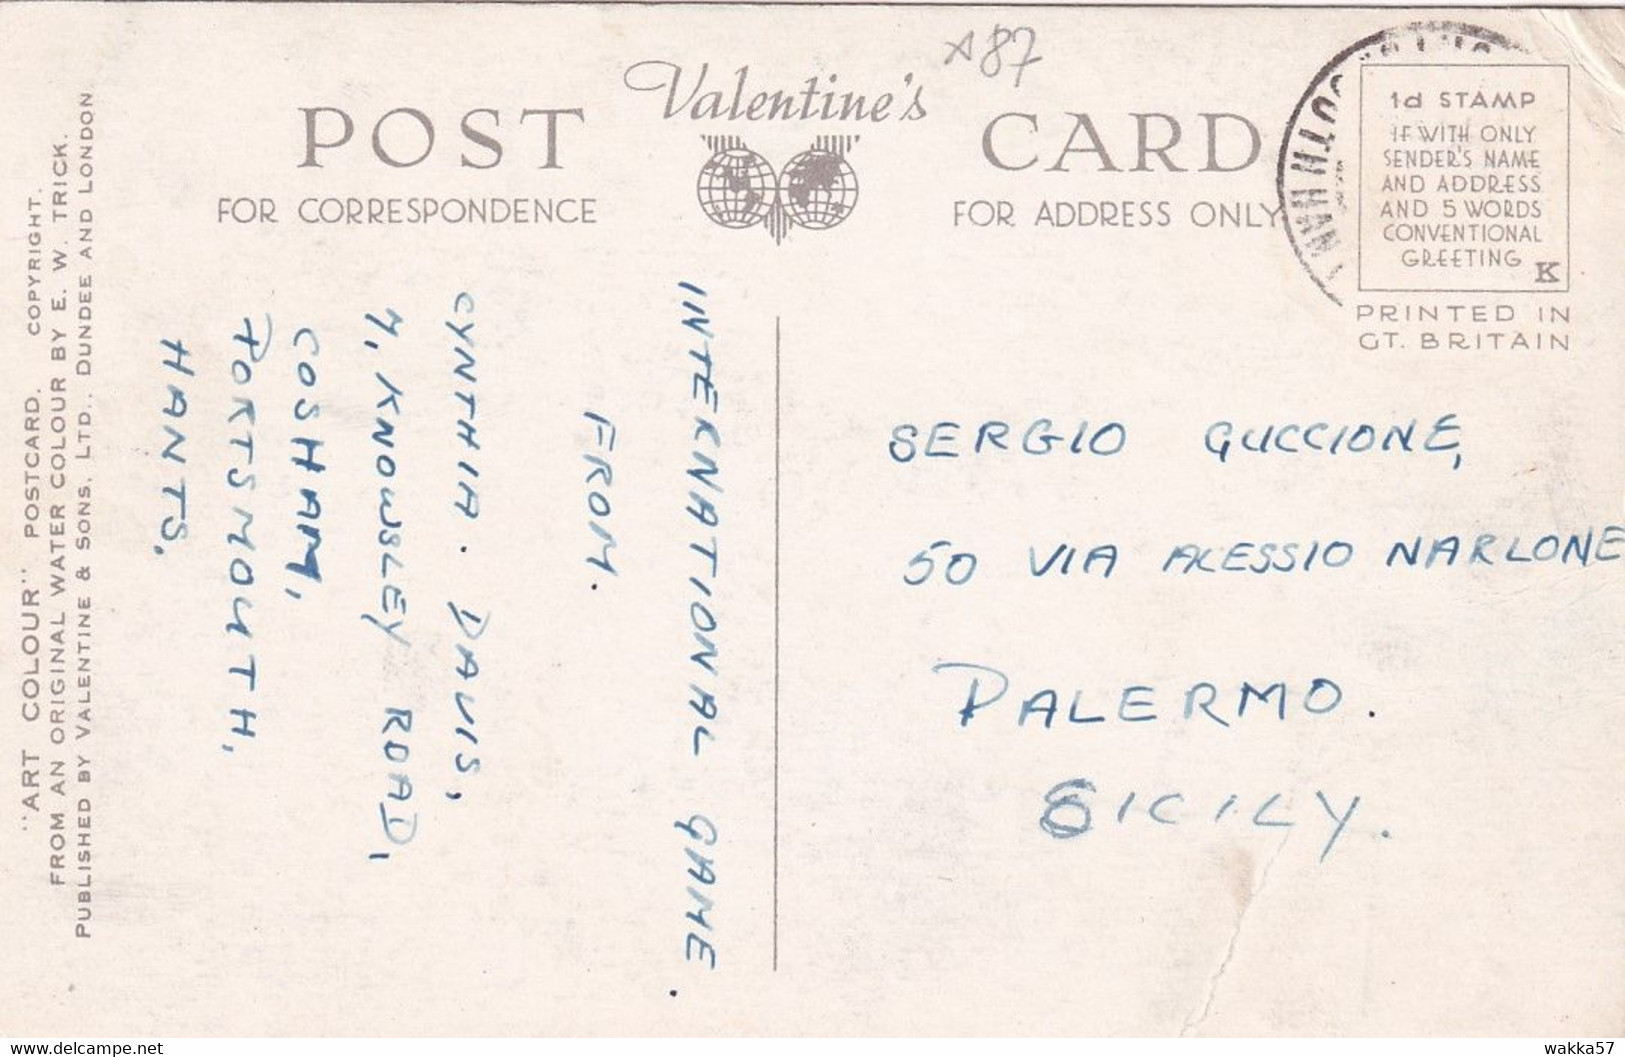 A87
Valentine's
POST CARD
FOR CORRESPONDENCE
FOR ADDRESS ONLY
1d STAMP
IF WITH ONLY
SENDER'S NAME
AND ADDRESS
AND 5 WORDS
CONVENTIONAL
GREETING
K
PRINTED IN
GT. BRITAIN
"ART COLOUR" POSTCARD. COPYRIGHT.
FROM AN ORIGINAL WATER COLOUR BY E. W. TRICK.
PUBLISHED BY VALENTINE & SONS, LTD., DUNDEE AND LONDON
INTERNATIONAL GAME.
FROM.
CYNTHIA. DAVIS,
7, KNOWSLEY ROAD,
COSHAM,
PORTSMOUTH,
HANTS,
SERGIO GUCCIONE,
50 VIA ALESSIO NARLONE
PALERMO.
SICILY.
delcampe.net
wakka57